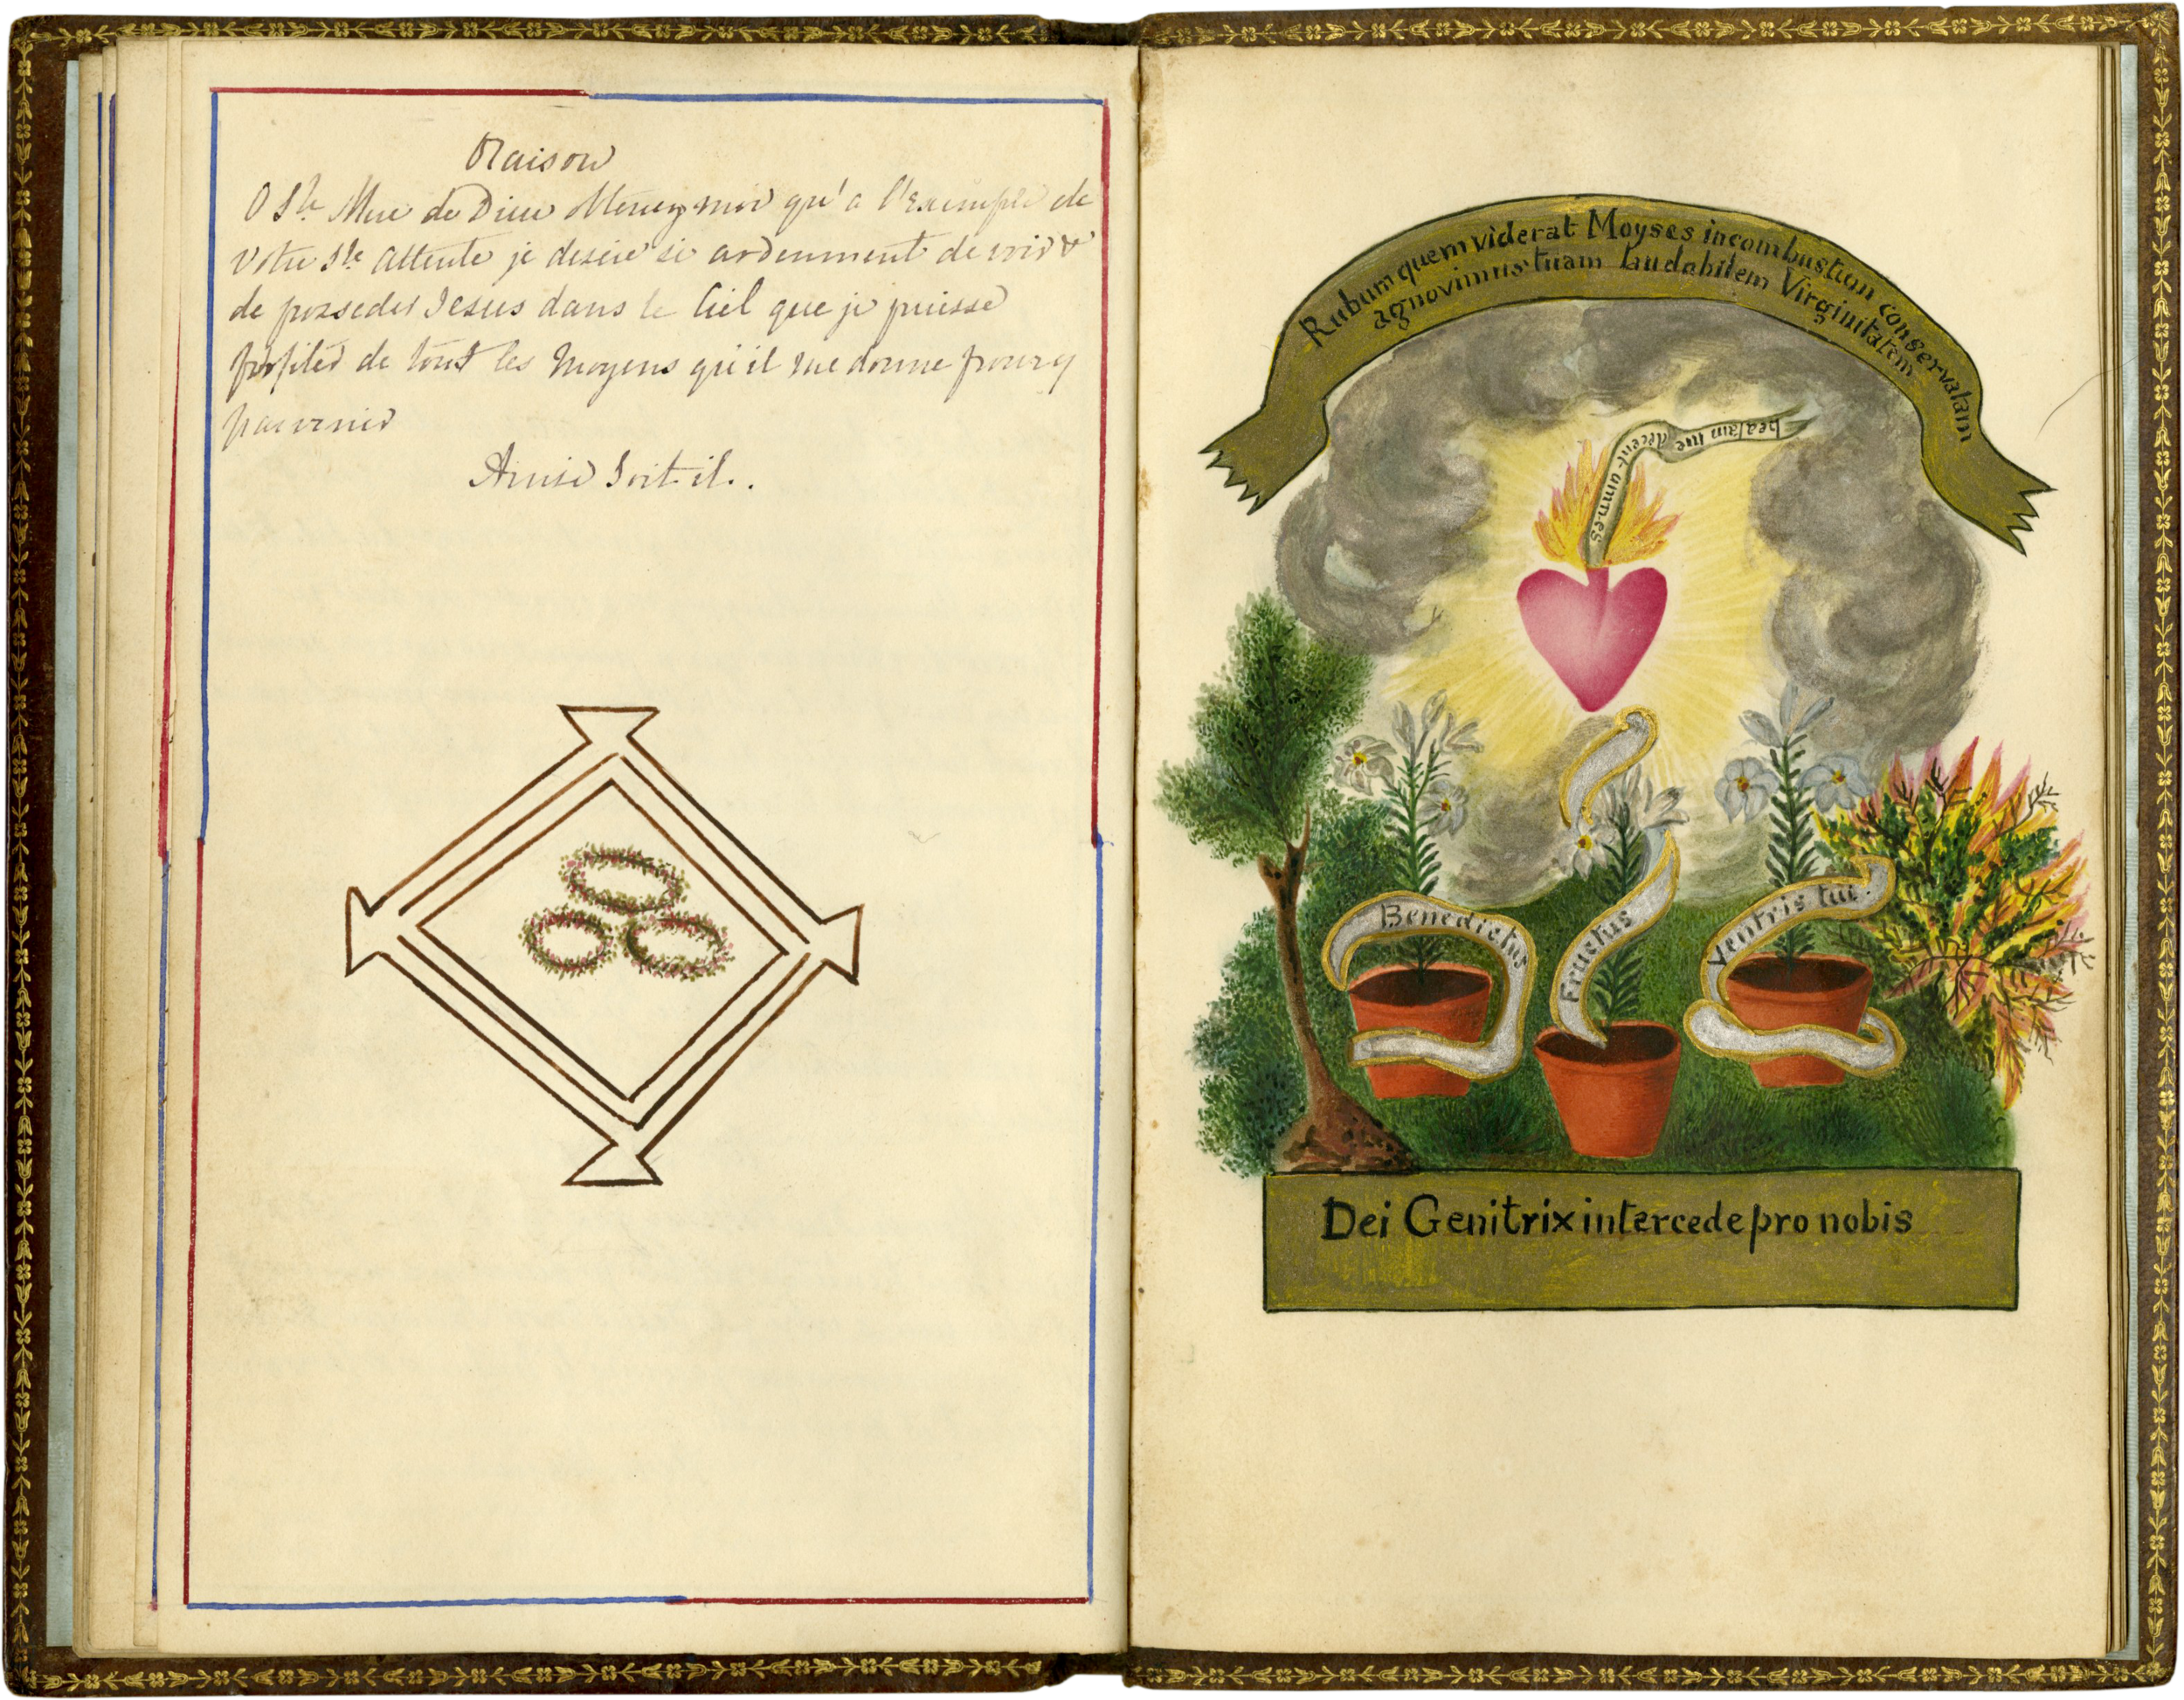 Oraison
O Ste Mere de Dieu obtenez moi qu'a l'Exemple de
votre Ste attente je desire si ardemment de voir &
de posseder Jesus dans le Ciel que je puisse
profiter de tout les moyens qu'il me donne pour y
parvenir
Ainsi Soit il.
Rubum quem viderat Moyses incombustum conservatam
agnovimus tuam laudabilem Virginitatem
beatam me dicent omnes
Benedictus
Fructus
Ventris tui.
Dei Genitrix intercede pro nobis